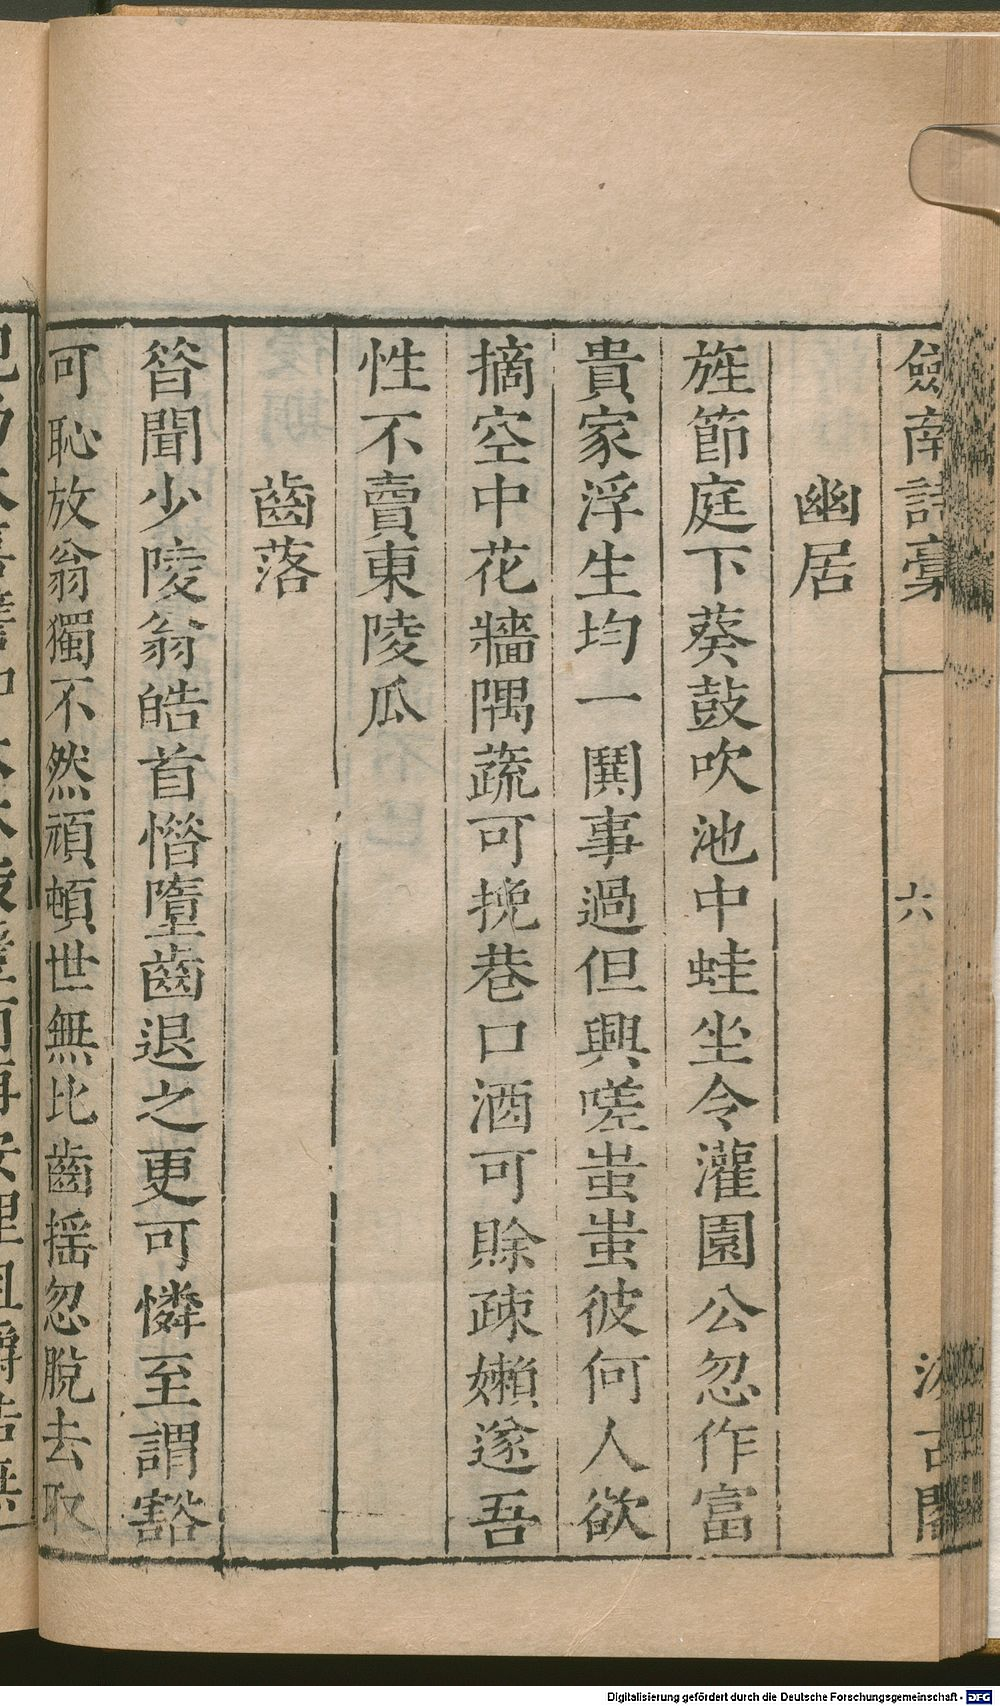 劔南詩稾
六
汲古閣
幽居
旌節庭下葵鼓吹池中蛙坐令灌園公忽作富
貴家浮生均一鬨事過但興嗟蚩蚩彼何人欲
摘空中花牆隅蔬可挽巷口酒可賒疎嬾遂吾
性不賣東陵瓜
齒落
昝聞少陵翁皓首憯墮齒退之更可憐至謂豁
可恥放翁獨不然頑頓世無比齒揺忽脫去取
Digitalisierung gefördert durch die Deutsche Forschungsgemeinschaft - DFG